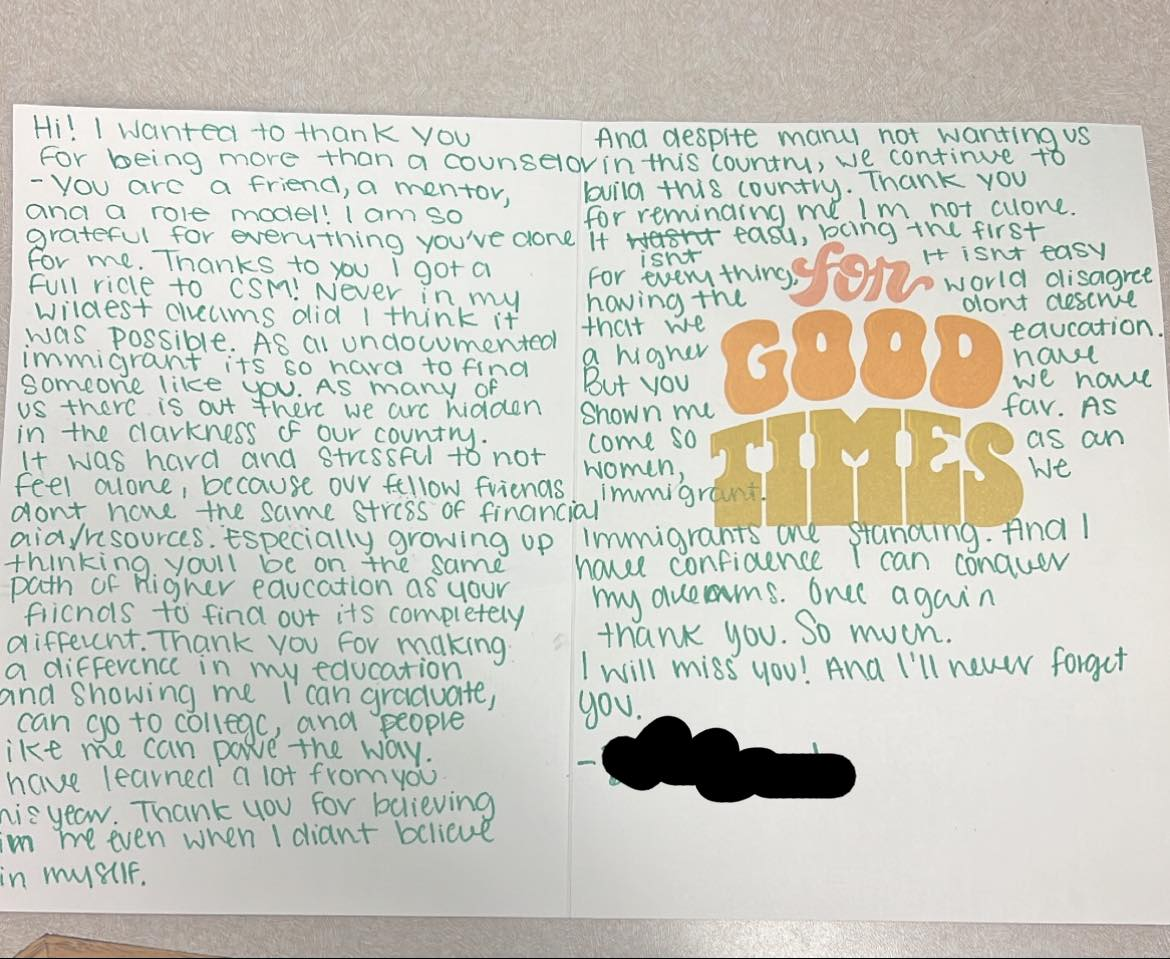 Hi! I wanted to thank you
for being more than a counselor
- You are a friend, a mentor,
and a role model! I am so
grateful for everything you've done
for me. Thanks to you I got a
full ride to CSM! Never in my
wildest dreams did I think it
was possible. As an undocumented
immigrant its so hard to find
someone like you. As many of
us there is out there we are hidden
in the darkness of our country.
It was hard and stressful to not
feel alone, because our fellow friends
dont have the same stress of financial
aid/resources. Especially growing up
thinking youll be on the same
path of higher education as your
friends to find out its completely
different. Thank you for making
a difference in my education
and showing me I can graduate,
can go to college, and people
ike me can pave the way.
have learned a lot from you
his year. Thank you for believing
in me even when I didnt believe
in myself.
And despite many not wanting us
in this country, we continue to
build this country. Thank you
for reminding me I'm not alone.
It wasnt easy, being the first
isnt It isnt easy
for everything, world disagree
having the dont deserve
that we education.
a higher have
But you we have
shown me far. As
come so as an
women, we
immigrant.
for
GOOD
TIMES
Immigrants are standing. And I
have confidence I can conquer
my dreams. Once again
thank you. So much.
I will miss you! And I'll never forget
you.
-